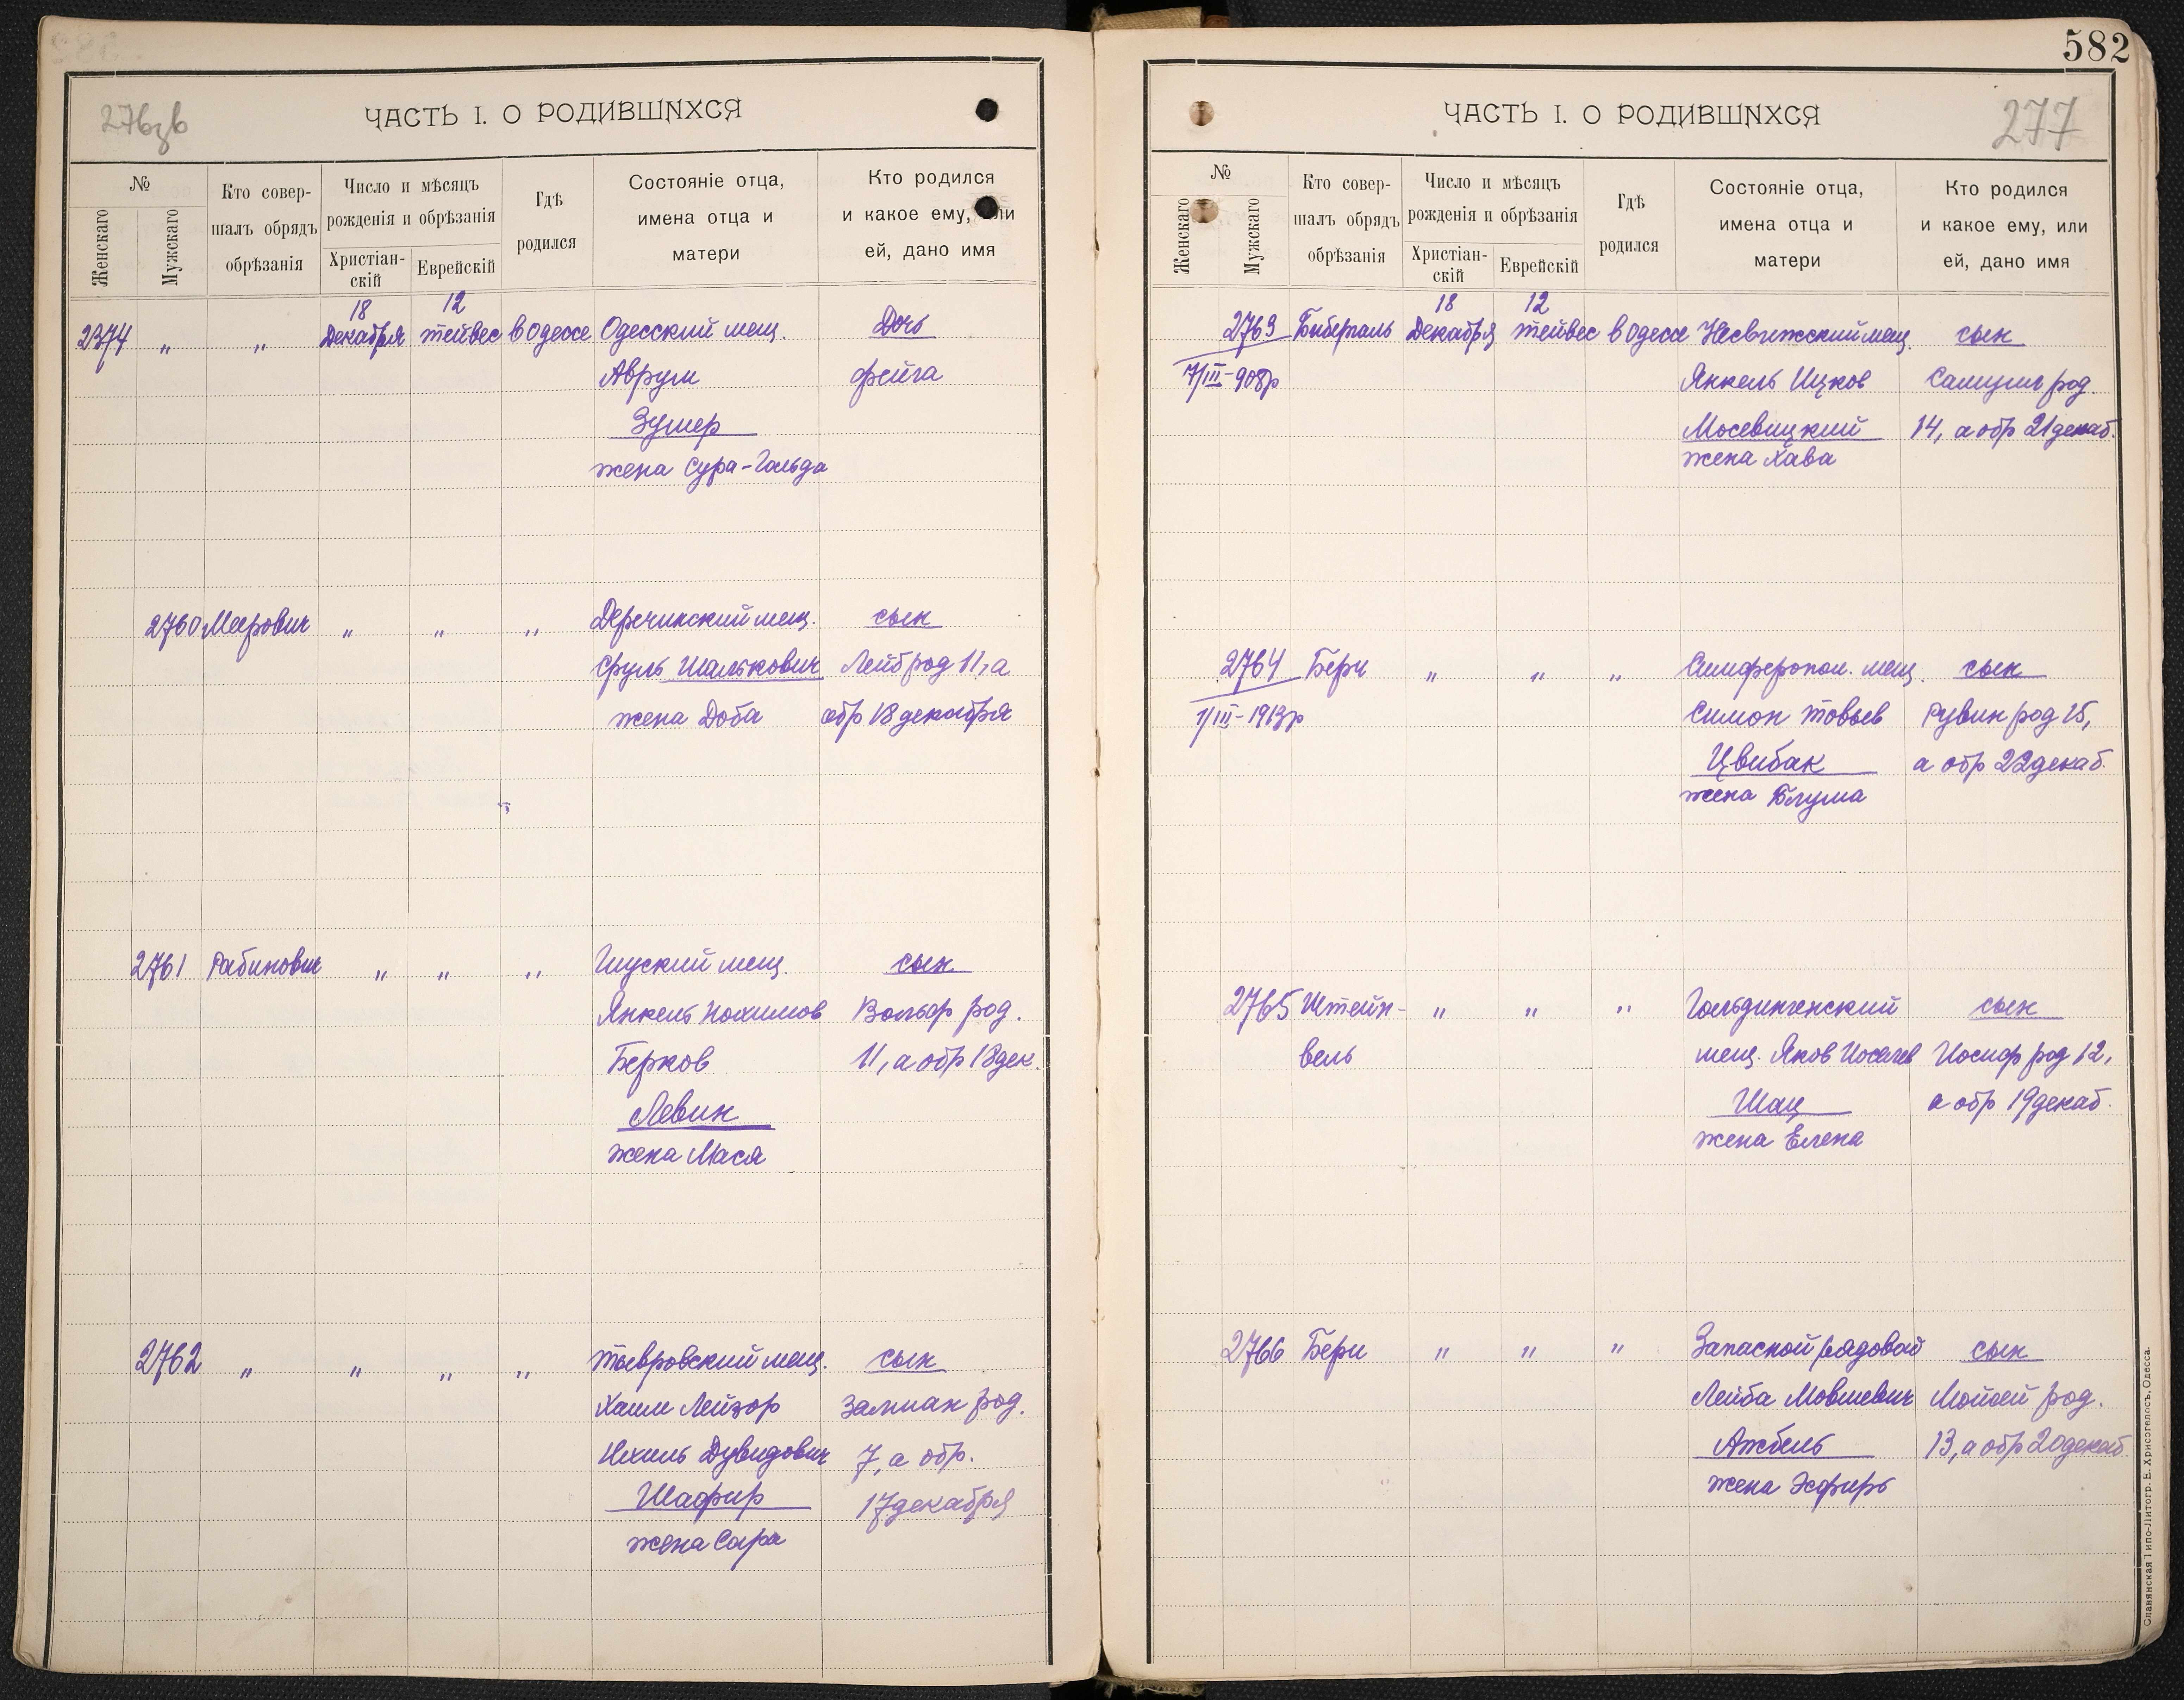 582
276зв
ЧАСТЬ I. О РОДИВШИХСЯ
№
Женскаго
Мужскаго
Кто совер-
шалъ обрядъ
обрѣзанія
Число и мѣсяцъ
рожденія и обрѣзанія
Христіан-
скій
Еврейскій
Гдѣ
родился
Состояніе отца,
имена отца и
матери
Кто родился
и какое ему, или
ей, дано имя
18 12
2374 " " Декабря тейвес в Одессе Одесский мещ. Дочь
Аврум Фейга
Зушер
жена Сура-Гольда
2760 Меерович " " " Деречинский мещ. сын
Сруль Шалькович Лейб род 11, а
жена Доба обр 18 декабря
2761 Рабинович " " " мещ. сын
Янкель Нохимов Вольф род.
Берков 11, а обр 18 дек.
Левин
жена Мася
2762 " " " " Тывровский мещ. сын
Хаим Лейзор Залман род.
Ихиль Дувидович 7, а обр.
Шафир 17 декабря
жена Сара
ЧАСТЬ I. О РОДИВШИХСЯ
277
№
Женскаго
Мужскаго
Кто совер-
шалъ обрядъ
обрѣзанія
Число и мѣсяцъ
рожденія и обрѣзанія
Христіан-
скій
Еврейскій
Гдѣ
родился
Состояніе отца,
имена отца и
матери
Кто родился
и какое ему, или
ей, дано имя
18 12
2763 Биберталь Декабря тейвес в Одессе Несвижский мещ. сын
7/III-908р Янкель Ицков Самуил род
Мосевицкий 14, а обр 21 декаб.
жена Хава
2764 Бери " " " Симферопол. мещ. сын
1/III-1913р Симон Товьев Рувин род 15,
Цвибак а обр 22 декаб.
жена Блума
2765 Штейн- " " " Гольдингенский сын
вель мещ. Яков Иоселев Иосиф род 12,
Шац а обр 19 декаб.
жена Елена
2766 Бери " " " Запасной рядовой сын
Лейба Мовшевич Мойсей род.
Ажбель 13, а обр 20 декаб.
жена Эсфирь
Славянская Типо-Литогр. Е. Хрисогелосъ, Одесса.